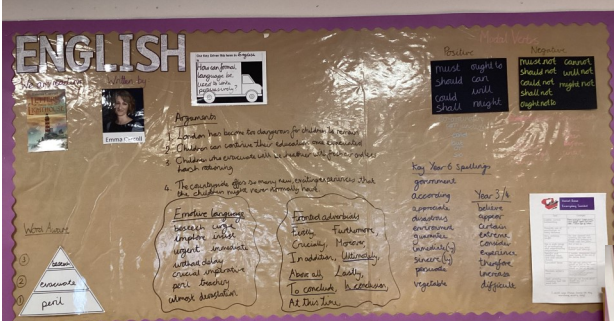 ENGLISH
We are reading
Written by
Emma Carroll
Our Key Driver this term is English
How can formal
language be
used to write
persuasively?
Modal Verbs
Positive
must ought to
should can
could will
shall might
Negative
must not cannot
should not will not
could not might not
shall not
ought not to
Arguments
1. London has become too dangerous for children to remain
2. Children can continue their education once evacuated
3. Children who evacuate will be healthier
harsh rationing
4. The countryside offers so many new, exciting experiences that
the children might never normally have.
Emotive language
beseech urge
implore insist
urgent immediate
without delay
crucial imperative
peril treachery
utmost devastation
Fronted adverbials
Firstly, Furthermore,
Crucially, Moreover
In addition, Ultimately,
Above all, Lastly,
To conclude, In conclusion,
At this time,
Key Year 6 Spellings
government
according
appreciate
disastrous
environment
guarantee
immediate(ly)
sincere(ly)
persuade
vegetable
Year 3/4
believe
appear
certain
extreme
consider
experience
therefore
increase
difficult
Word Aware
3
beseech
2
evacuate
1
peril